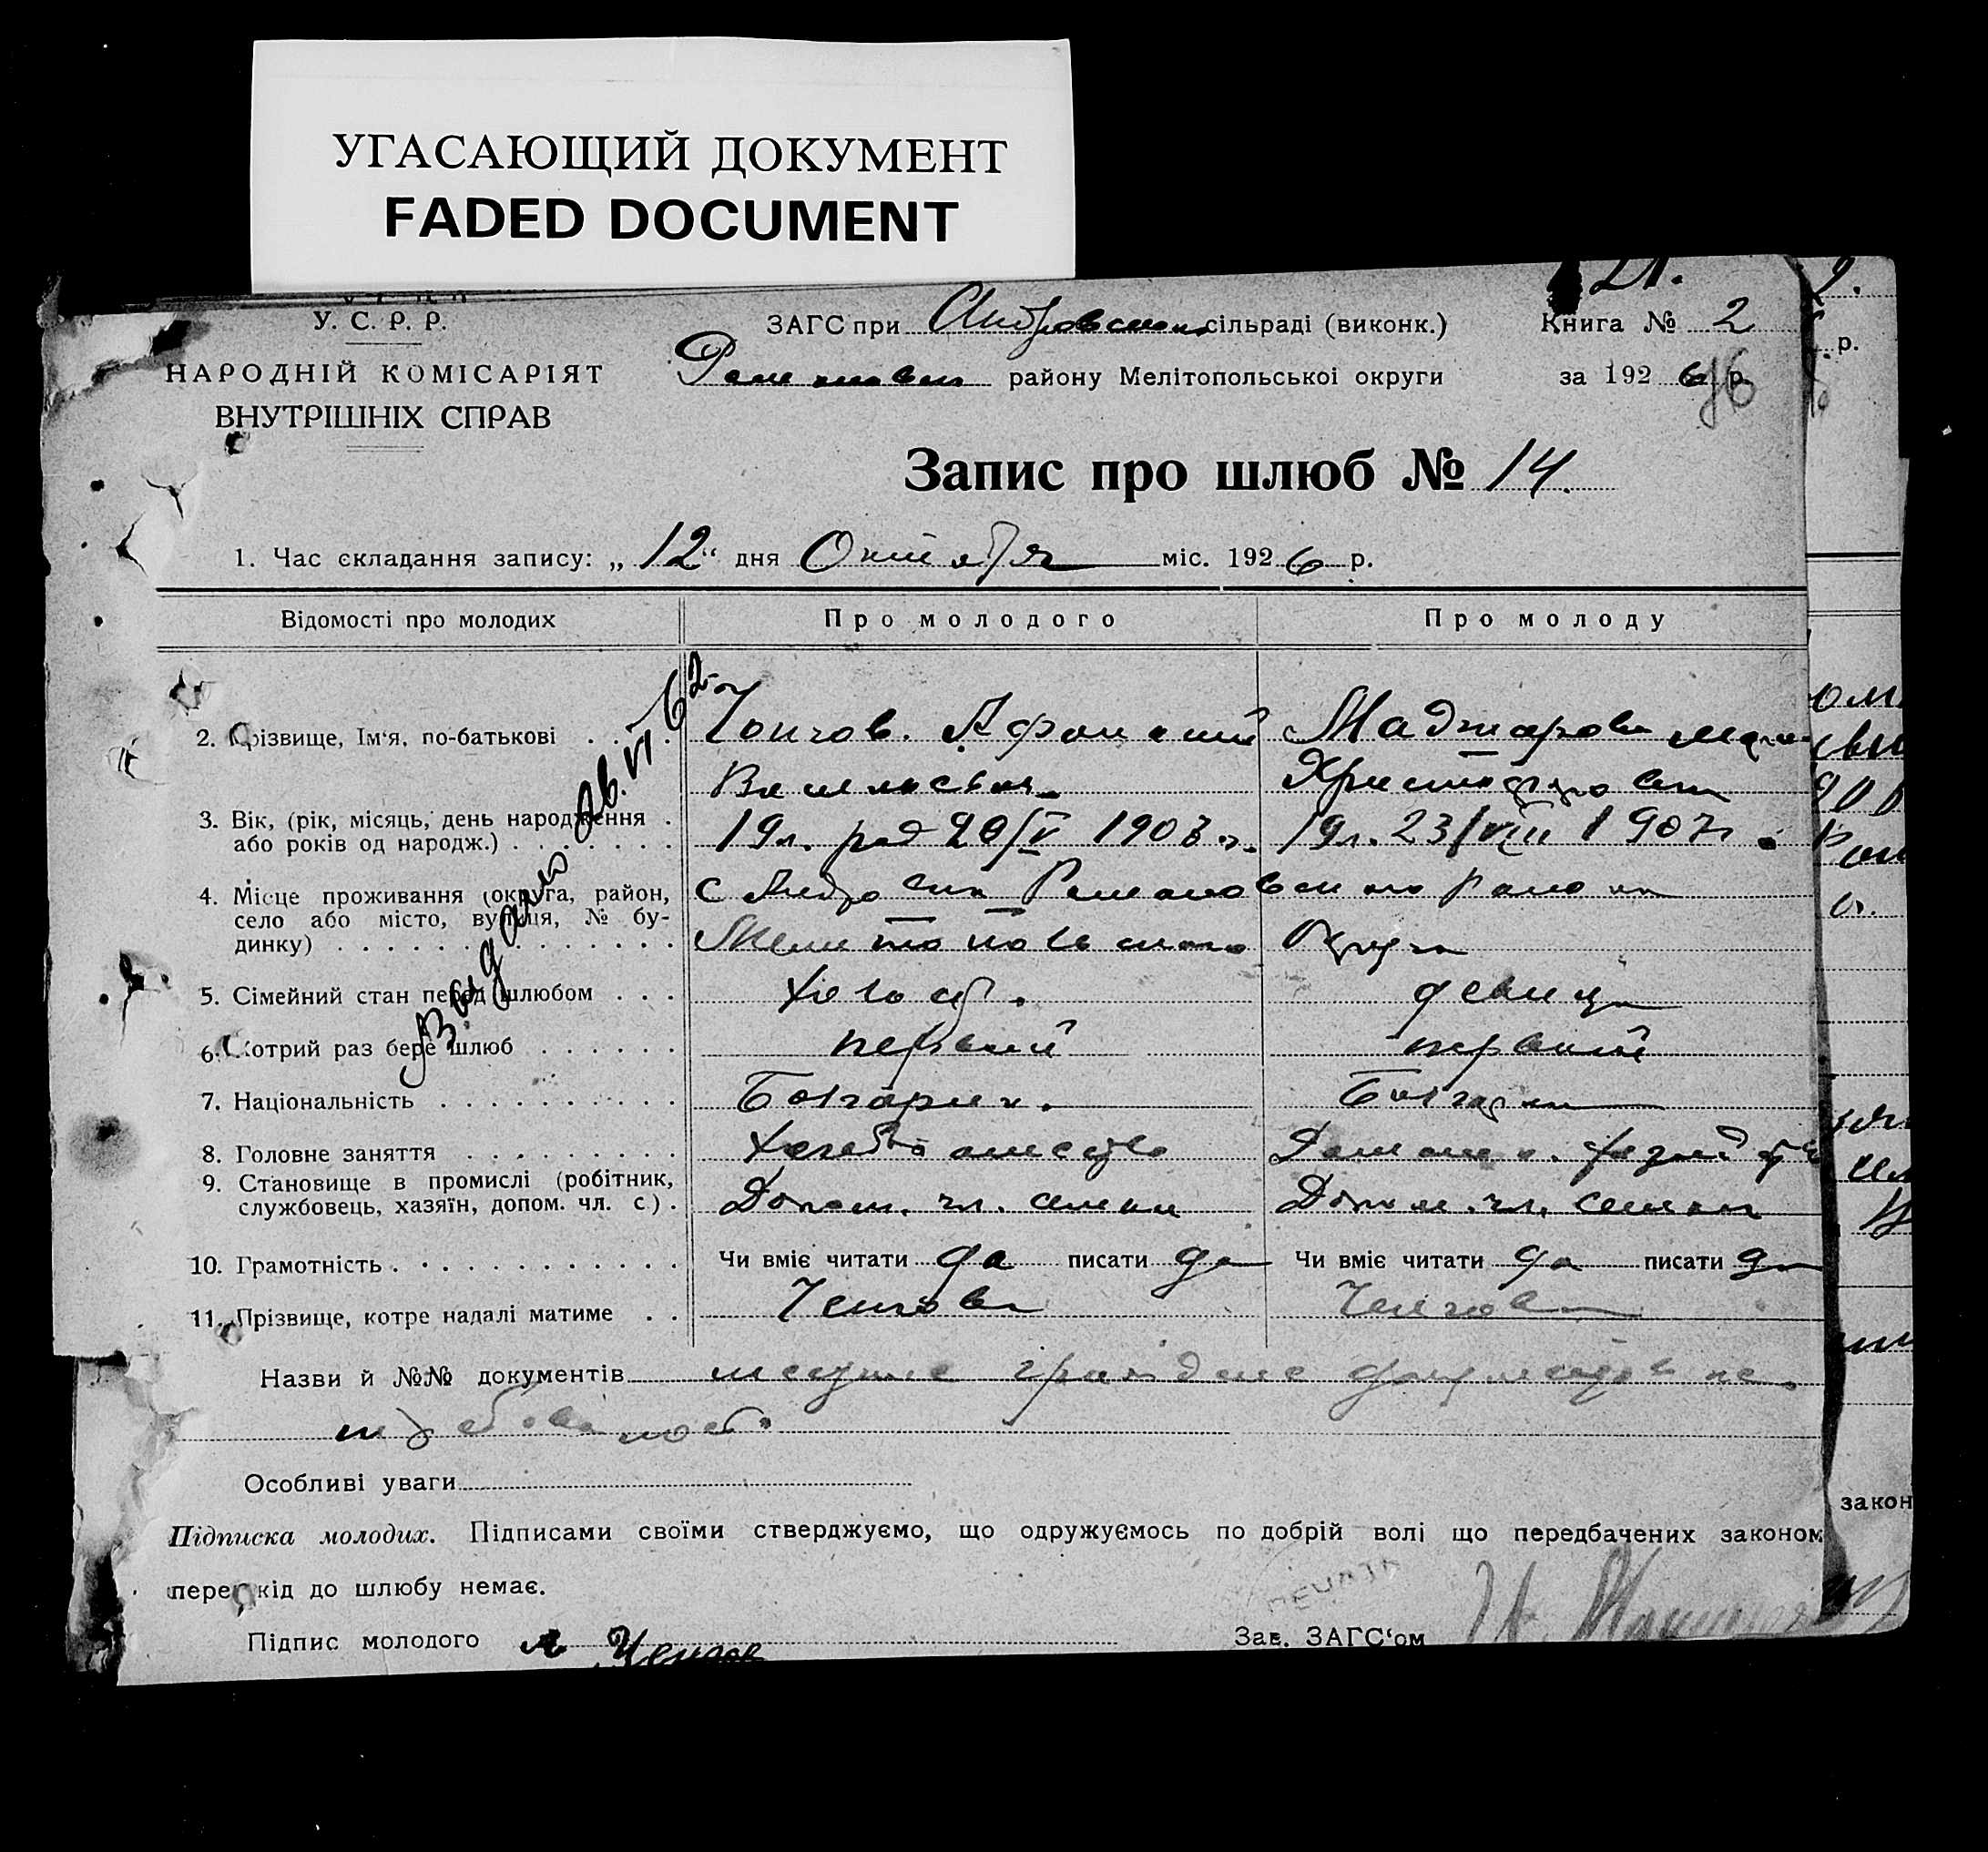 УГАСАЮЩИЙ ДОКУМЕНТ
FADED DOCUMENT
У. С. Р. Р.
НАРОДНІЙ КОМІСАРІЯТ
ВНУТРІШНІХ СПРАВ
ЗАГС при сільраді (виконк.)
району Мелітопольської округи
Книга № 2
за 1926 р.
Запис про шлюб № 14.
1. Час складання запису: „ 12 “ дня Октября міс. 1926 р.
Відомості про молодих
Про молодого
Про молоду
2. Прізвище, Ім'я, по-батькові
Афанасий
Васильевич
Маджарова
Христофоровна
3. Вік, (рік, місяць, день народження
або років од народж.)
19 л. род 20/V 190
19 л. 23/VIII 1907 г.
4. Місце проживання (округа, район,
село або місто, вулиця, № бу-
динку)
с Романовского района
Мелитопольского Округа
5. Сімейний стан перед шлюбом
холост.
девица
6. Котрий раз бере шлюб
первый
первый
7. Національність
Болгарин.
Болгарка
8. Головне заняття
Хлебопашество
Домашн. хозяйство
9. Становище в промислі (робітник,
службовець, хазяїн, допом. чл. с.)
Допом. чл. семьи
Допом. чл. семьи
10. Грамотність
Чи вміє читати да писати да
Чи вміє читати да писати да
11. Прізвище, котре надалі матиме
Ченгов
Ченгова
Назви й №№ документів
Особливі уваги
Підписка молодих. Підписами своїми стверджуємо, що одружуємось по добрій волі що передбачених законом
перешкід до шлюбу немає.
Підпис молодого А Ченгов
Зав. ЗАГС‘ом
выдано 26.VI-62
р.
закон